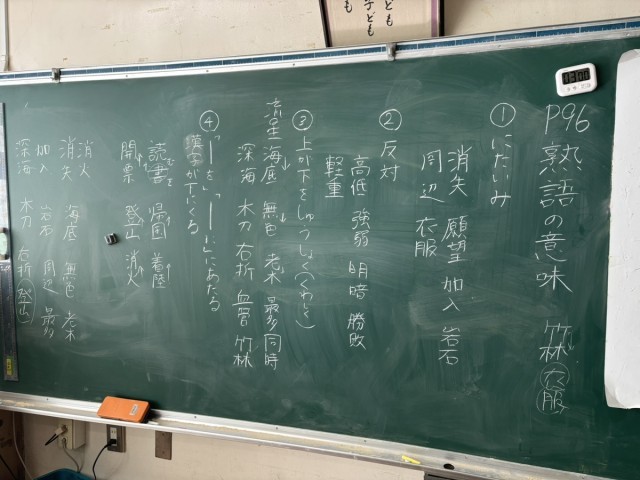 P96 熟語の意味 竹林 衣服
① にたいみ
消失 願望 加入 岩石
周辺 衣服
② 反対
高低 強弱 明暗 勝敗
軽重
③ 上が下をしゅうしょく(くわしく)
流星 海底 無色 老木 最多 同時
深海 木刀 右折 血管 竹林
④ 「―を」「―に」にあたる
漢字が下にくる
読書 帰国 着陸
開票 登山 消火
消火
消失 海底 無色 老木
加入 岩石 周辺 最多
深海 木刀 右折 (登山)
ども
子ども
も